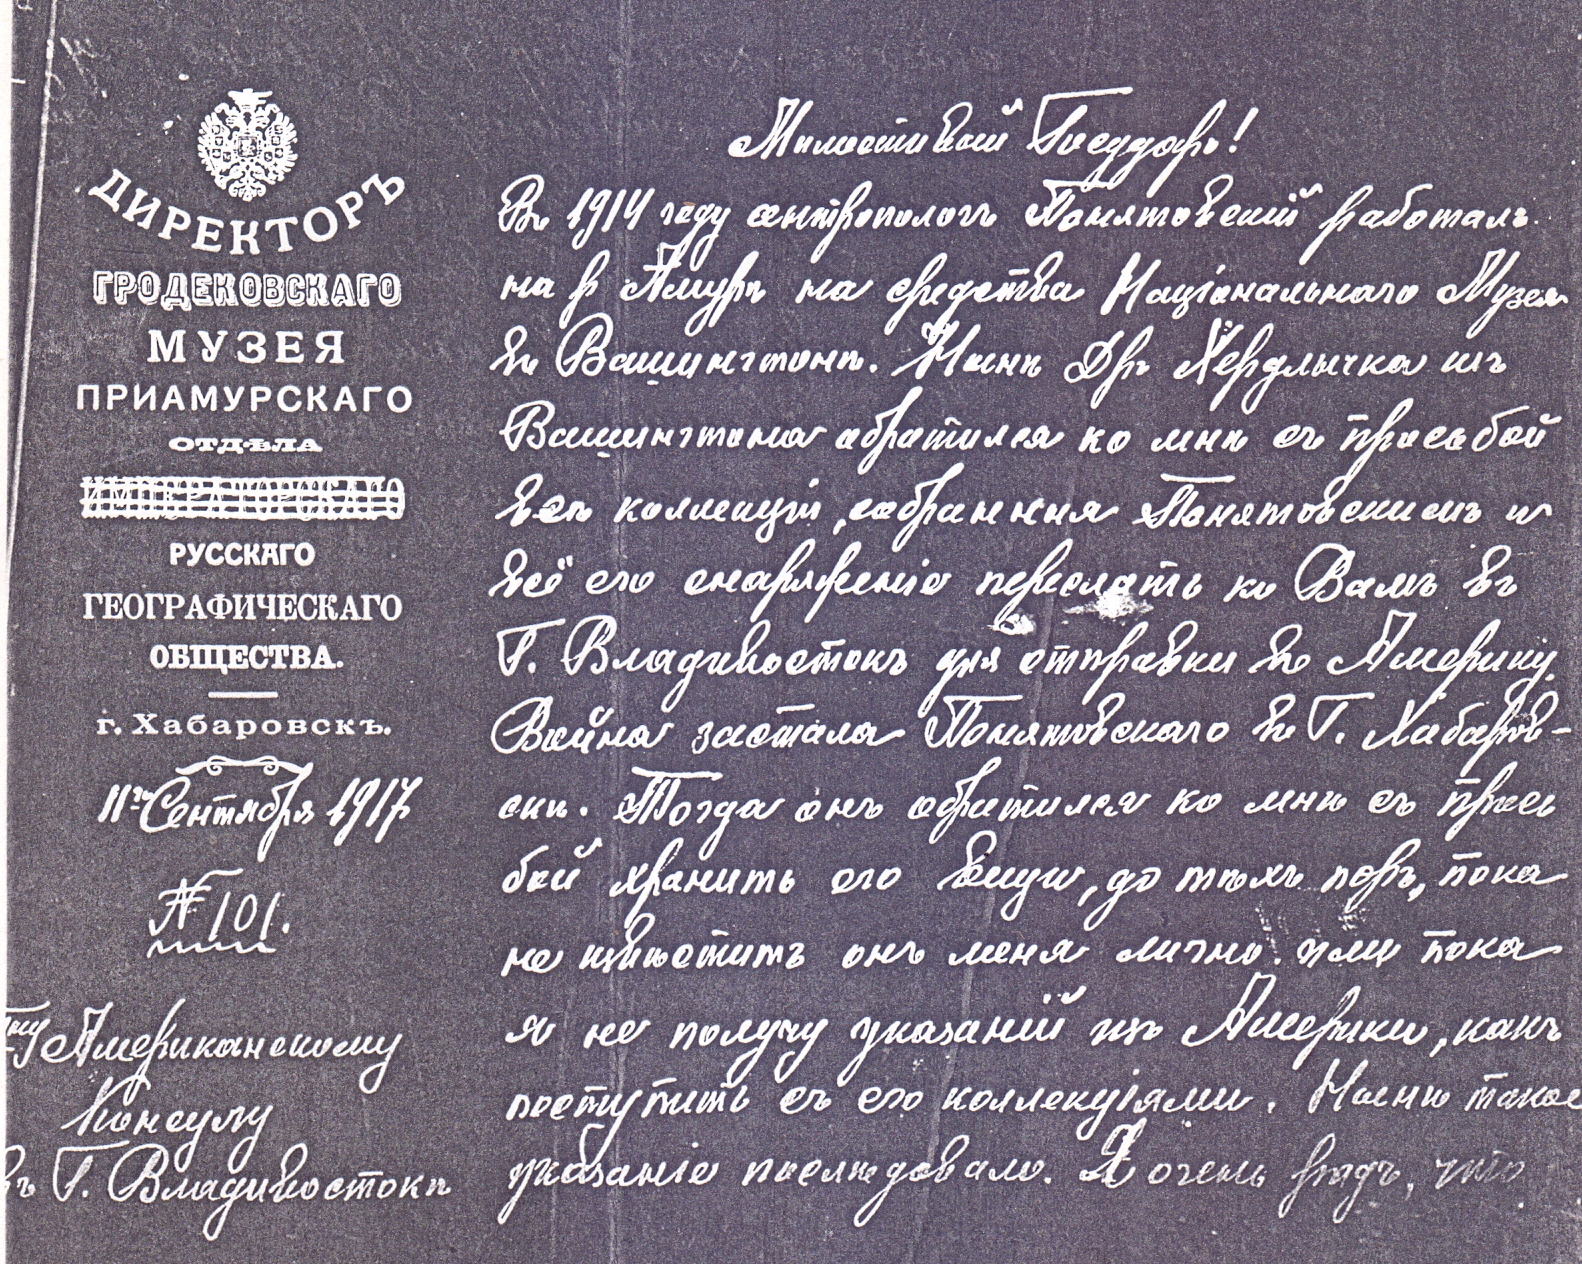 ДИРЕКТОРЪ
ГРОДЕКОВСКАГО
МУЗЕЯ
ПРИАМУРСКАГО
ОТДѢЛА
ИМПЕРАТОРСКАГО
РУССКАГО
ГЕОГРАФИЧЕСКАГО
ОБЩЕСТВА.
г. Хабаровскъ.
11го Сентября 1917
№ 101.
Американскому
Консулу
въ Г. Владивостокѣ
Милостивый Государь!
Въ 1914 году антропологъ Понятовскій работалъ
на р Амурѣ на средства Національнаго Музея
въ Вашингтонѣ. Нынѣ Др Хердлычка изъ
Вашингтона обратился ко мнѣ съ просьбой
всѣ коллекціи, собранныя Понятовскимъ и
всё его снаряженіе переслать ко Вамъ въ
Г. Владивостокъ для отправки въ Америку.
Война застала Понятовскаго въ Г. Хабаров-
скѣ. Тогда онъ обратился ко мнѣ съ прось
бой хранить его вещи, до тѣхъ поръ, пока
не извѣститъ онъ меня лично или пока
я не получу указаній изъ Америки, какъ
поступить съ его коллекціями. Нынѣ такое
указаніе послѣдовало. Я очень радъ, что